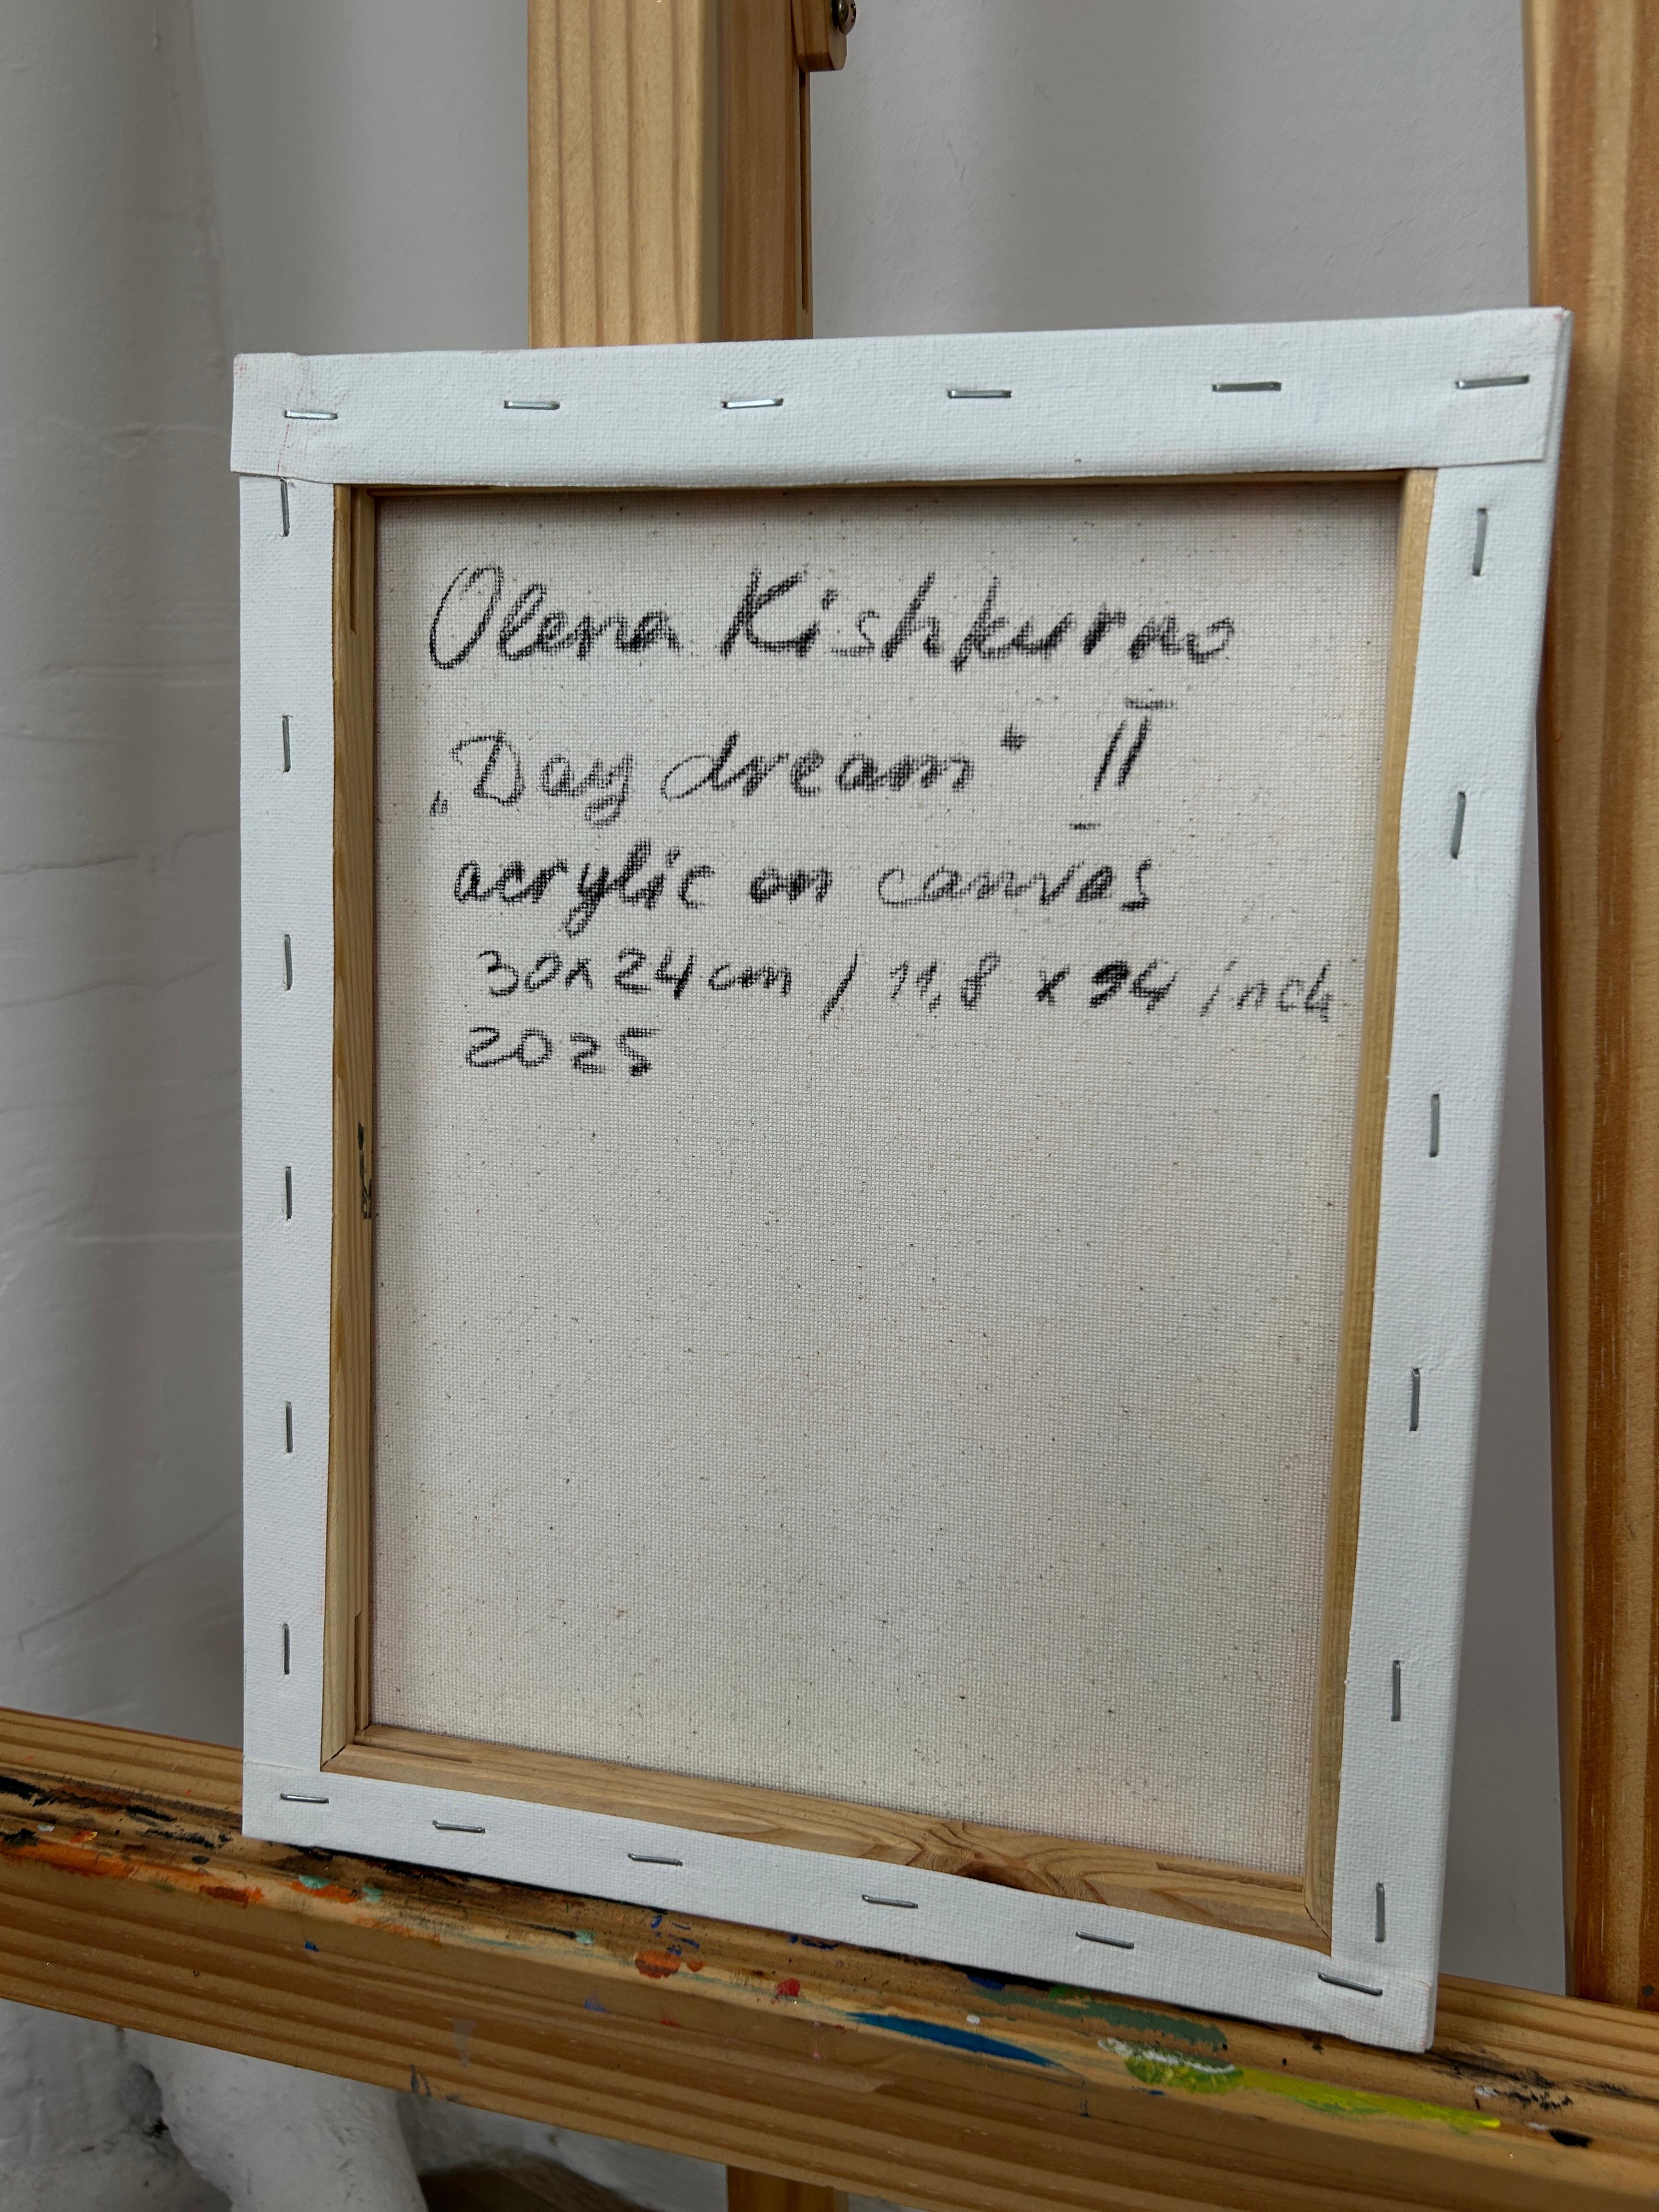 Olena Kishkurno
„Day dream“ II
acrylic on canvas
30x24cm / 11,8 x 94 inch
2025